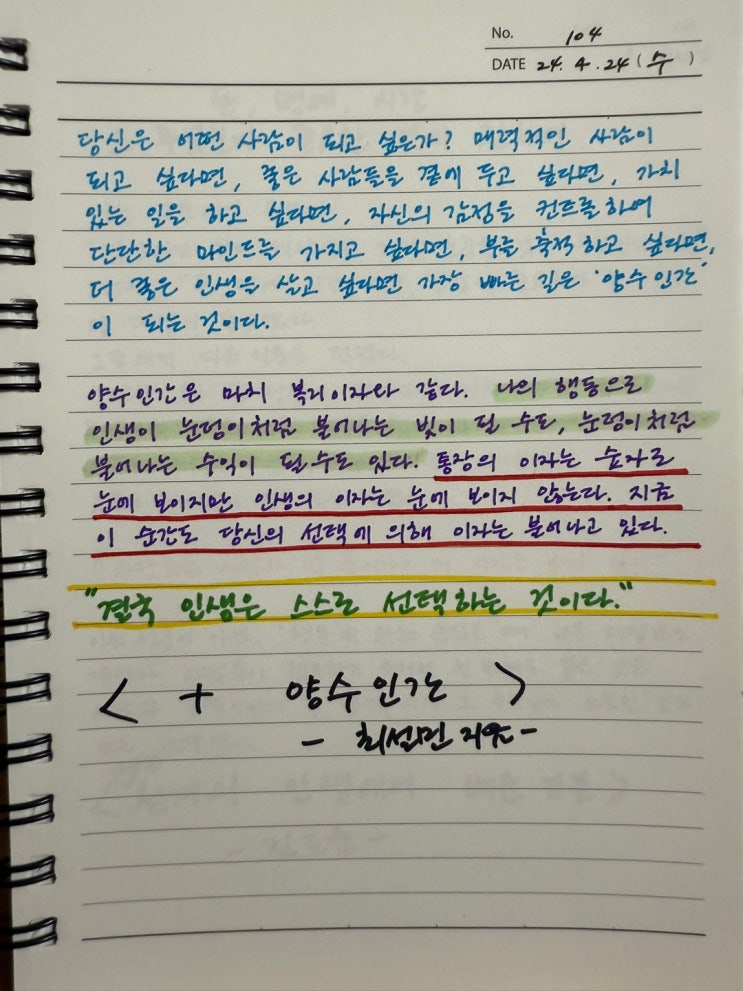 No. 104
DATE 24. 4. 24 (수)
당신은 어떤 사람이 되고 싶은가? 매력적인 사람이
되고 싶다면, 좋은 사람들을 곁에 두고 싶다면, 가치
있는 일을 하고 싶다면, 자신의 감정을 컨트롤하여
단단한 마인드를 가지고 싶다면, 부를 축적하고 싶다면,
더 좋은 인생을 살고 싶다면 가장 빠른 길은 '양수인간'
이 되는 것이다.
양수인간은 마치 복리이자와 같다. 나의 행동으로
인생이 눈덩이처럼 불어나는 빚이 될 수도, 눈덩이처럼
불어나는 수익이 될 수도 있다. 통장의 이자는 숫자로
눈에 보이지만 인생의 이자는 눈에 보이지 않는다. 지금
이 순간도 당신의 선택에 의해 이자는 불어나고 있다.
"결국 인생은 스스로 선택하는 것이다."
< + 양수인간 >
- 최설민 지음 -